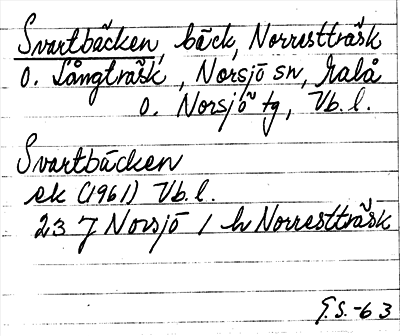 Svartbäcken, bäck, Norrestträsk
o. Långträsk, Norsjö sn, Malå
o. Norsjö tg, Vb. l.
Svartbäcken
ek (1961) Vb. l.
23 J Norsjö / h Norrestträsk
G.S. -63